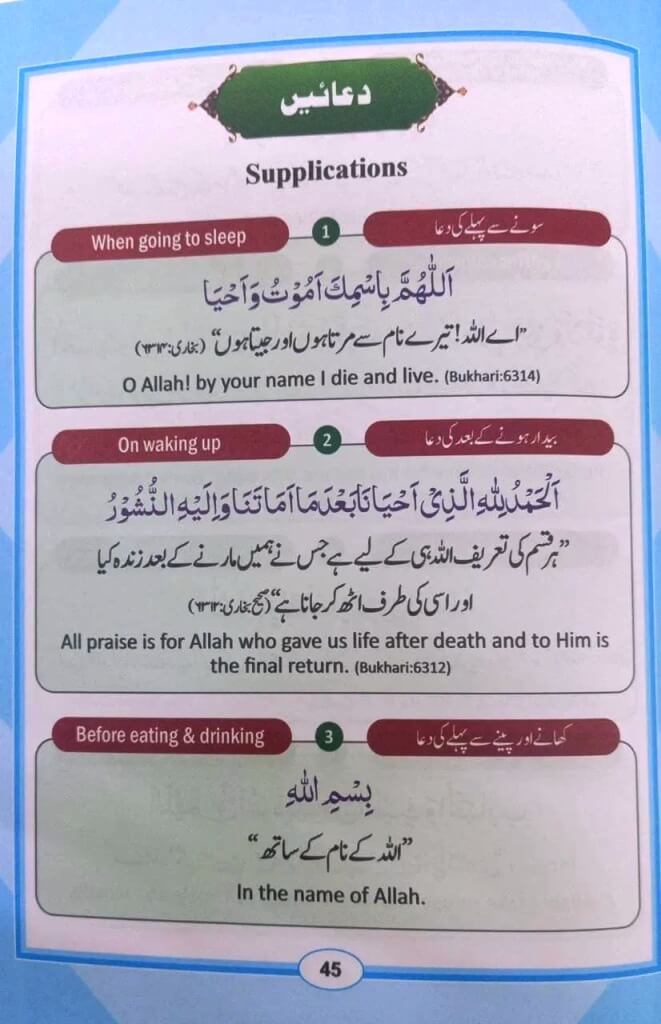 دعائیں
Supplications
When going to sleep 1 سونے سے پہلے کی دعا
اَللّٰهُمَّ بِاسْمِكَ اَمُوْتُ وَ اَحْيَا
”اے اللہ! تیرے نام سے مرتا ہوں اور جیتا ہوں“ (بخاری:۶۳۱۴)
O Allah! by your name I die and live. (Bukhari:6314)
On waking up 2 بیدار ہونے کے بعد کی دعا
اَلْحَمْدُ لِلّٰهِ الَّذِىْ اَحْيَانَا بَعْدَ مَا اَمَاتَنَا وَ اِلَيْهِ النُّشُوْرُ
”ہر قسم کی تعریف اللہ ہی کے لیے ہے جس نے ہمیں مارنے کے بعد زندہ کیا
اور اسی کی طرف اٹھ کر جانا ہے“ (صحیح بخاری:۶۳۱۲)
All praise is for Allah who gave us life after death and to Him is
the final return. (Bukhari:6312)
Before eating & drinking 3 کھانے اور پینے سے پہلے کی دعا
بِسْمِ اللّٰهِ
”اللہ کے نام کے ساتھ“
In the name of Allah.
45